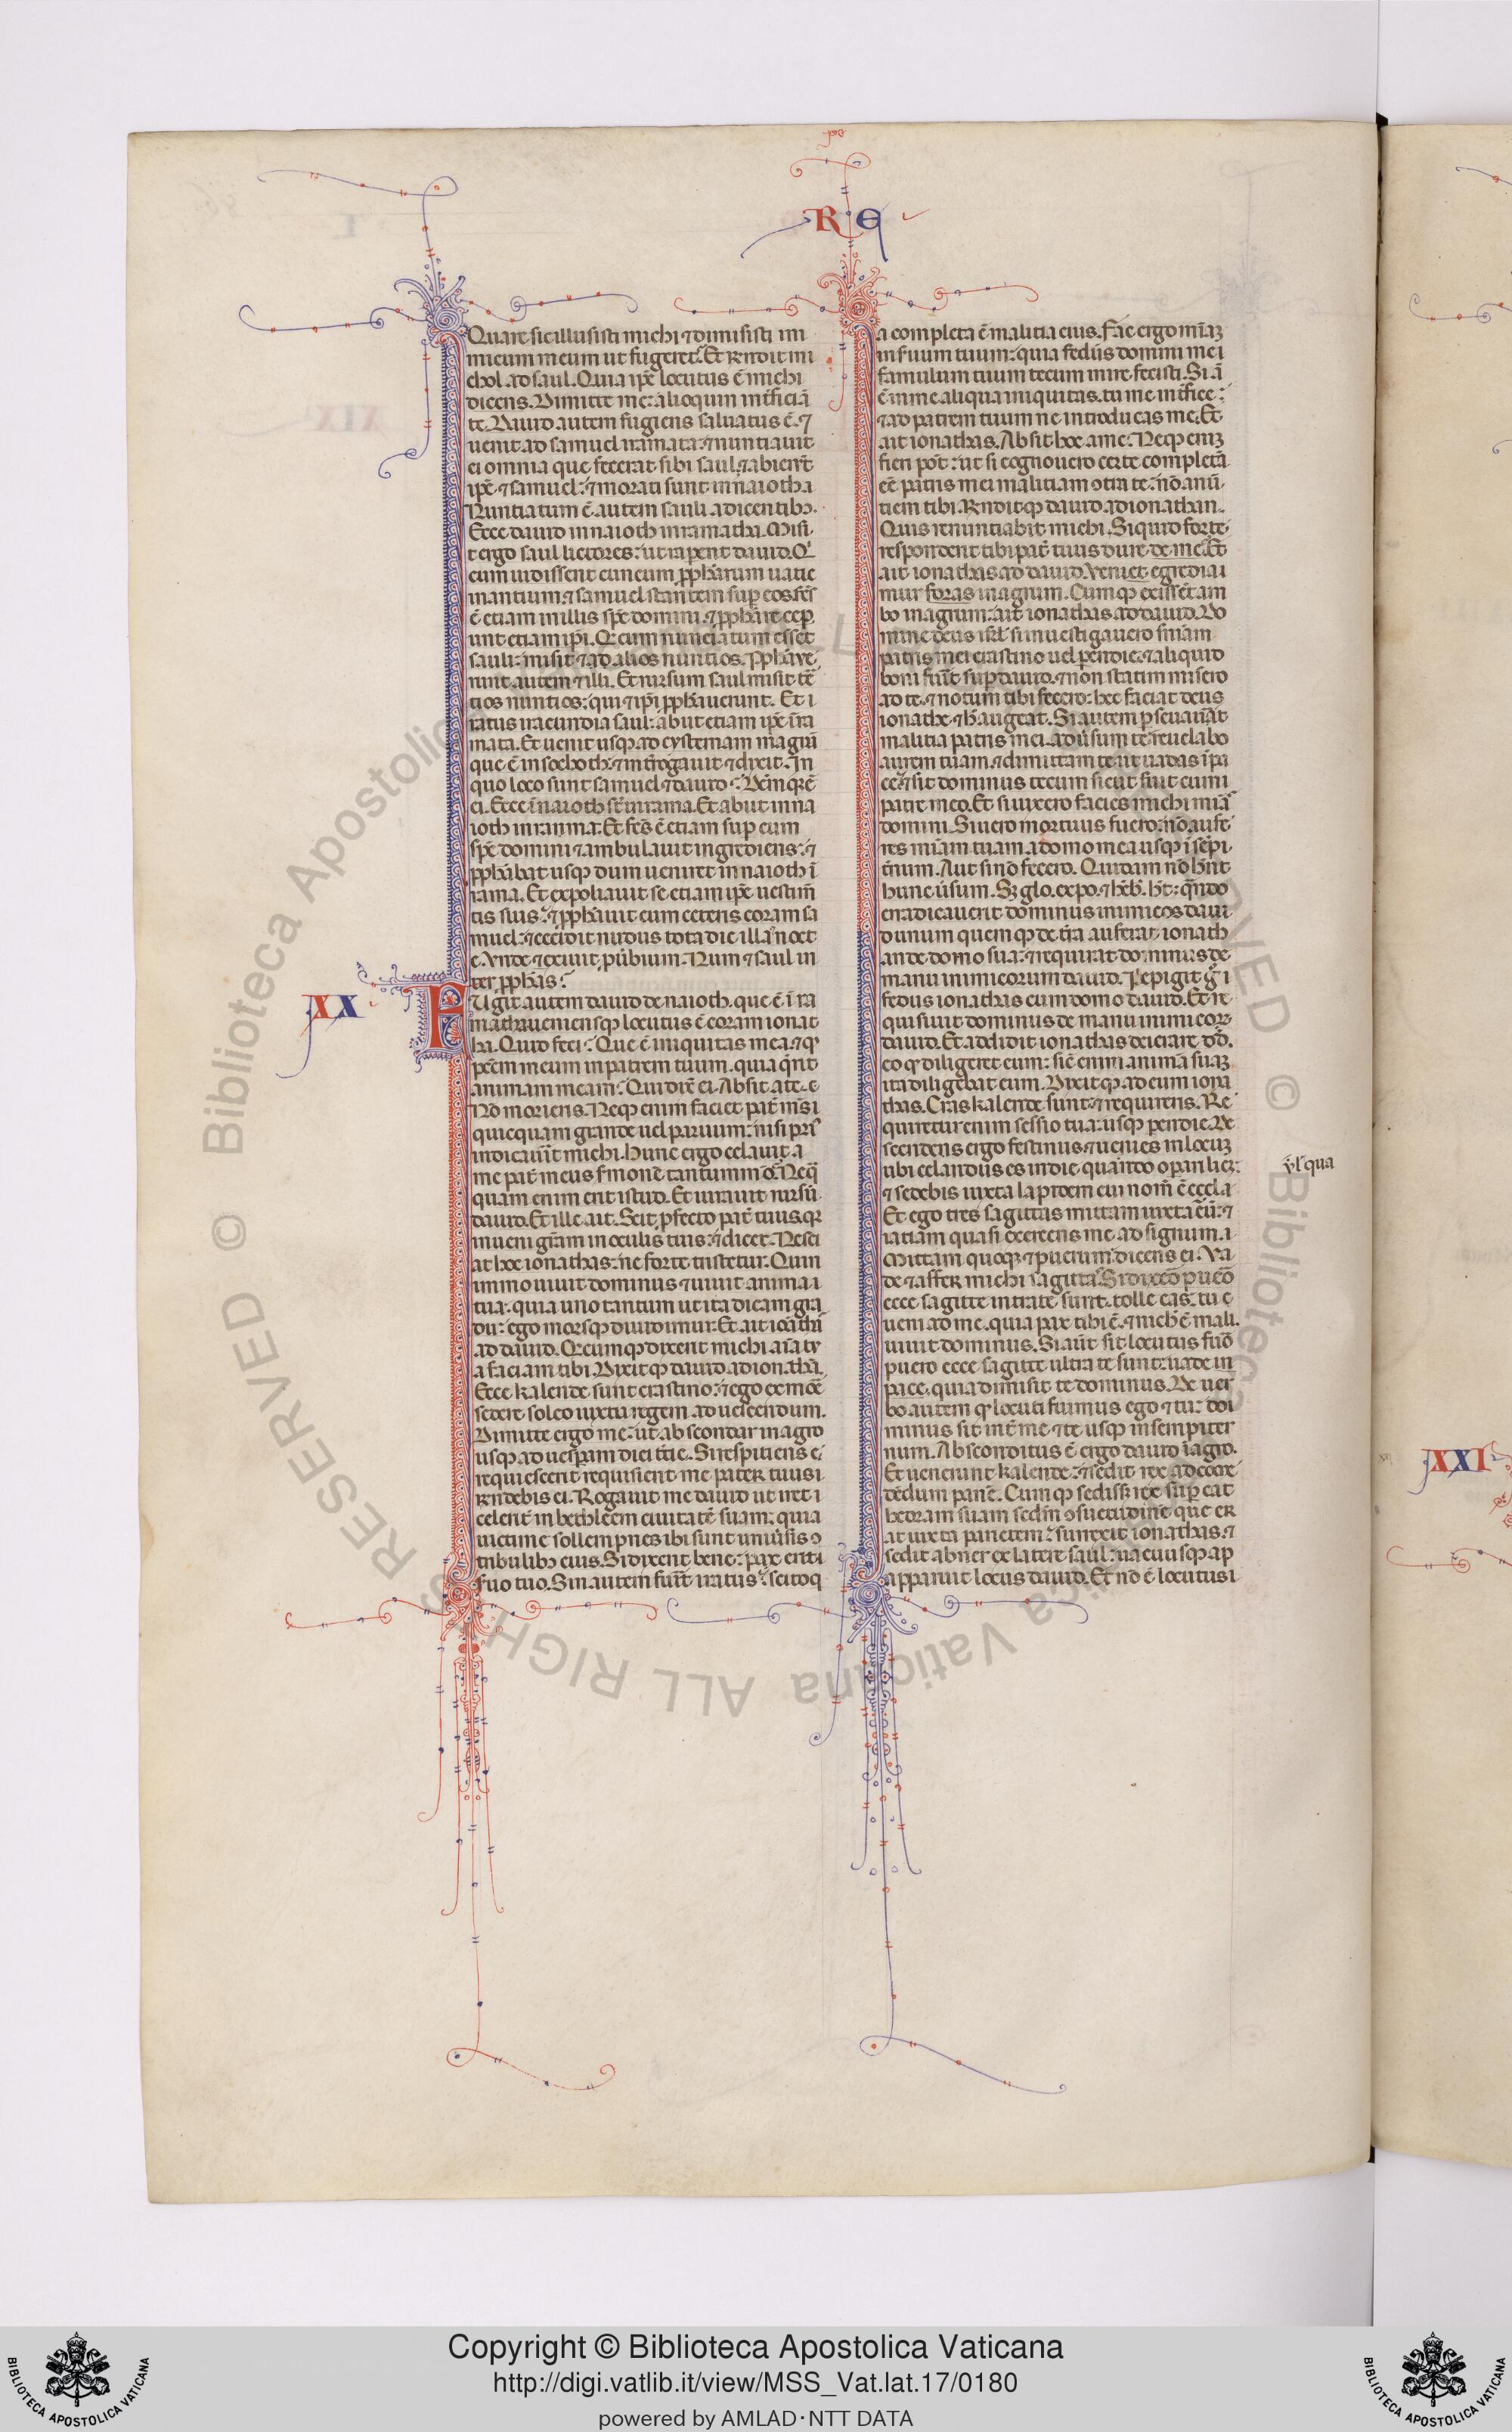 RE
Quare sic illusisti michi ⁊ dimisisti ini
micum meum ut fugeret. Et rendit mi
chol ad saul. Quia ip̄e locutus ē michi
dicens. Dimitte me: alioquin int̄ficiā
te. Dauid autem fugiens saluatus ē. ⁊
uenit ad samuel in ramata: ⁊ nuntiauit
ei omnia que fecerat sibi saul. ⁊ abier̄t
ip̄e ⁊ samuel: ⁊ morati sunt in naioth a
Nuntiatum ē autem sauli a dicentibꝫ.
Ecce dauid in naioth in ramatha. Misi
t ergo saul lictores: ut raperent dauid. Q̄
cum uidissent cuneum ꝓph̄arum uatic
inantium ⁊ samuel stantem sup̄ eos. fc̄s
ē etiam in illis sp̄c domini. ⁊ ꝓph̄are cep̄
unt etiam ip̄i. Q̄ cum nunciatum esset
sauli: misit ⁊ ad alios nuntios. Ꝓph̄aue
runt autem ⁊ illi. Et rursum saul misit t̄c
tios nuntios: qui ⁊ ip̄i ꝓph̄auerunt. Et i
ratus iracundia saul: abiit etiam ip̄e ī ra
mata. Et uenit usqꝫ ad cysternam magnā
que ē in socboth: ⁊ int̄rogauit ⁊ dixit. In
quo loco sunt samuel ⁊ dauid?
ei. Ecce ī naioth st̄ in rama. Et abiit in na
ioth in rama: Et fc̄s ē etiam sup̄ eum
sp̄c domini ⁊ ambulauit ingrediens: ⁊
ꝓph̄abat usqꝫ dum ueniret in naioth ī
rama. Et expoliauit se etiam ip̄e uestim̄
tis suis: ⁊ ꝓph̄auit cum ceteris coram sa
muel: ⁊ cecidit nudus tota die illa ⁊ noct
e. Vnde ⁊ exiuit ꝓuerbium: Num ⁊ saul in
ter ꝓph̄as?
XX
FUgit autem dauid de naioth. que ē ī ra
matha ueniensqꝫ locutus ē coram ionat
ha. Quid feci? Que ē iniquitas mea. ⁊ qd̄
pcc̄m meum in patrem tuum. quia q̄rit
animam meam? Qui dix̄ ei. Absit a te.
Nō morieris. Neqꝫ enim faciet pat̄ m̄s
quicquam grande uel paruum: nisi pri
indicauer̄it michi. Hunc ergo celauit a
me pat̄ meus s̄monē tantummō? Neq̄
quam enim erit istud. Et iurauit rursū
dauid. Et ille ait. Scit ꝓfecto pat̄ tuus. qr̄
inueni gr̄am in oculis tuis: ⁊ dicet. Nesci
at hoc ionathas: ne forte tristetur. Quin
immo uiuit dominus ⁊ uiuit anima
tua: quia uno tantum ut ita dicam gra
du: ego morsqꝫ diuidimur. Et ait ionatha
ad dauid. Q̄cumqꝫ dixerit michi aīa tu
a faciam tibi. Dixitqꝫ dauid ad ionathā.
Ecce kalende sunt crastino: ⁊ ego ex more
sedere soleo iuxta regem ad uescendum.
Dimitte ergo me: ut abscondar in agro
usqꝫ ad uesperam diei t̄cie. Si respiciens
requisierit me pater tuus
rendebis ei. Rogauit me dauid ut iret
celerit̄ in bethleem ciuitatē suam: quia
uictime sollempnes ibi sunt uniūsis ꝯ
tribulibꝫ eius. Si dixerit bene: pax erit
suo tuo. Sin autem fuer̄it iratus: scito q
a completa ē malitia eius. Fac ergo mīam
in s̄uum tuum: quia fedus domini me
famulum tuum tecum inire fecisti. Si ā
ē in me aliqua iniquitas. tu me int̄fice:
⁊ ad patrem tuum ne introducas me. Et
ait ionathas. Absit hoc a me: Neqꝫ eniꝫ
fieri pōt: ut si cognouero certe completā
ēē patris mei malitiam ꝯtra te: nō anū
tiem tibi. Renditqꝫ dauid ad ionathan.
Quis renuntiabit michi. Si quid forte
responderit tibi pat̄ tuus dure de me? Et
ait ionathas ad dauid. Veni et egredia
mur foras in agrum. Cumqꝫ exissēt am
bo in agrum: ait ionathas ad dauid. Do
mine deus isr̄l si inuestigauero sn̄iam
patris mei crastino uel perendie. ⁊ aliquid
boni fuer̄t sup̄ dauid. ⁊ non statim misero
ad te. ⁊ notum tibi fecero: hec faciat deus
ionathe ⁊ h̄ augeat. Si autem ꝑseuāuit
malitia patris mei. aduersum te: reuelabo
aurem tuam. ⁊ dimittam te ut uadas ī pa
ce: ⁊ sit dominus tecum sicut fuit cum
patre meo. Et si uixero facies michi mīā
domini. Si uero mortuus fuero: nō aufe
res mīam tuam a domo mea usqꝫ ī sēpi
ternum. Aut si nō fecero. Quidam nō hn̄t
hunc ūsum. Sꝫ glo. expo. ⁊ heb̄. h̄t: qn̄do
eradicauerit dominus inimicos daui
d unum quemqꝫ de t̄ra auferat ionath
an de domo sua: ⁊ requirat dominus de
manu inimicorum dauid. Pepigit ḡ
fedus ionathas cum domo dauid. Et re
quisiuit dominus de manu inimicoꝝ
dauid. Et addidit ionathas deierare dd̄.
eo qd̄ diligeret eum: sic̄ enim animā suaꝫ
ita diligebat eum. Dixitqꝫ ad eum iona
thas. Cras kalende sunt: ⁊ requireris. Re
quiretur enim sessio tua: usqꝫ perendie. De
scendens ergo festinus: ⁊ uenies in locuꝫ
ubi celandus es in die quando operari licꝫ:
⁊ sedebis iuxta lapidem cui nom̄ ē ecel
ꝟl qua
Et ego tres sagittas mittam iuxta eū: ⁊
iaciam quasi exercens me ad signum.
Mittam quoqꝫ ⁊ puerum dicens ei. Va
de ⁊ affer michi sagittas. Si dixero puero
ecce sagitte intra te sunt. tolle eas: tu
ueni ad me. quia pax tibi ē. ⁊ nich̄ ē mali.
uiuit dominus. Si aut̄ sic locutus fuō
puero ecce sagitte ultra te sunt: uade in
pace. quia dimisit te dominus. De uer
bo autem qd̄ locuti fuimus ego ⁊ tu: do
minus sit int̄ me ⁊ te usqꝫ in sempiter
num. Absconditus ē ergo dauid ī agro.
Et uenerunt kalende: ⁊ sedit rex ad come
dēdum panē. Cumqꝫ sediss; rex sup̄ cat
hedram suam scdm̄ ꝯsuetudinē que er
at iuxta parietem: surrexit ionathas. ⁊
sedit abner ex latere saul: uacuusqꝫ ap
apparuit locus dauid. Et nō ē locutus
XXI
Copyright © Biblioteca Apostolica Vaticana
http://digi.vatlib.it/view/MSS_Vat.lat.17/0180
powered by AMLAD·NTT DATA
BIBLIOTECA APOSTOLICA VATICANA
BIBLIOTECA APOSTOLICA VATICANA